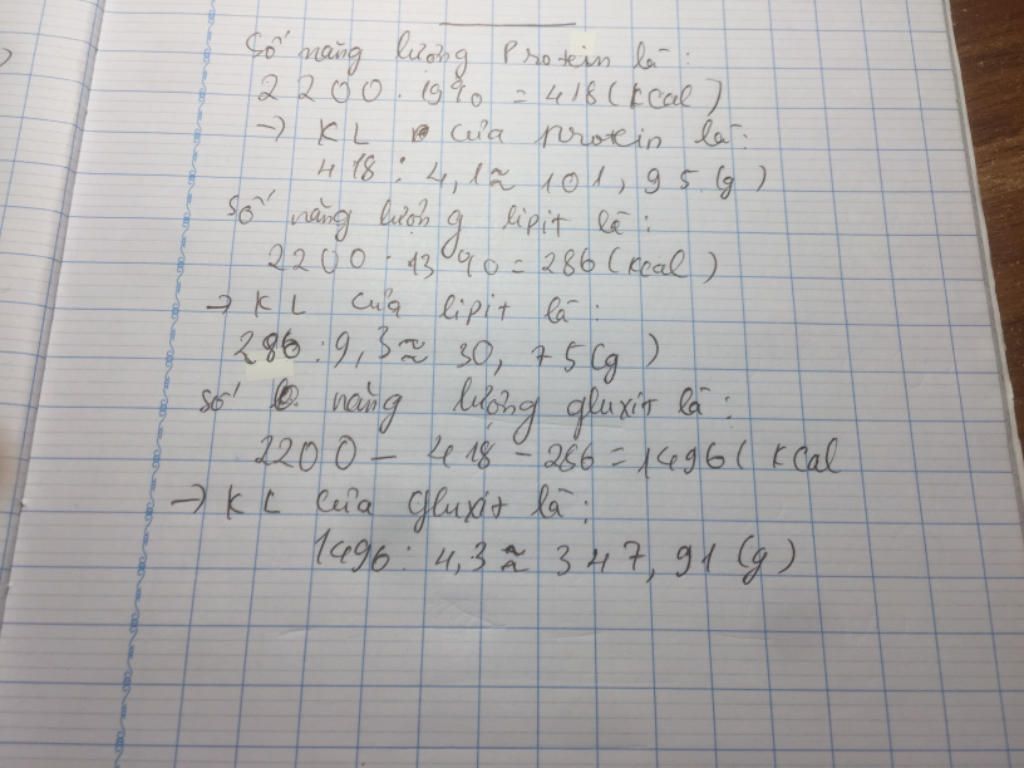 Số năng lượng Protein là:
2200 . 19% = 418 (kcal)
→ KL của Protein là:
418 : 4,1 ≈ 101,95 (g)
Số năng lượng lipit là:
2200 . 13% = 286 (kcal)
→ KL của lipit là:
286 : 9,3 ≈ 30,75 (g)
Số năng lượng gluxit là:
2200 - 418 - 286 = 1496 ( kcal
→ KL của gluxit là:
1496 : 4,3 ≈ 347,91 (g)